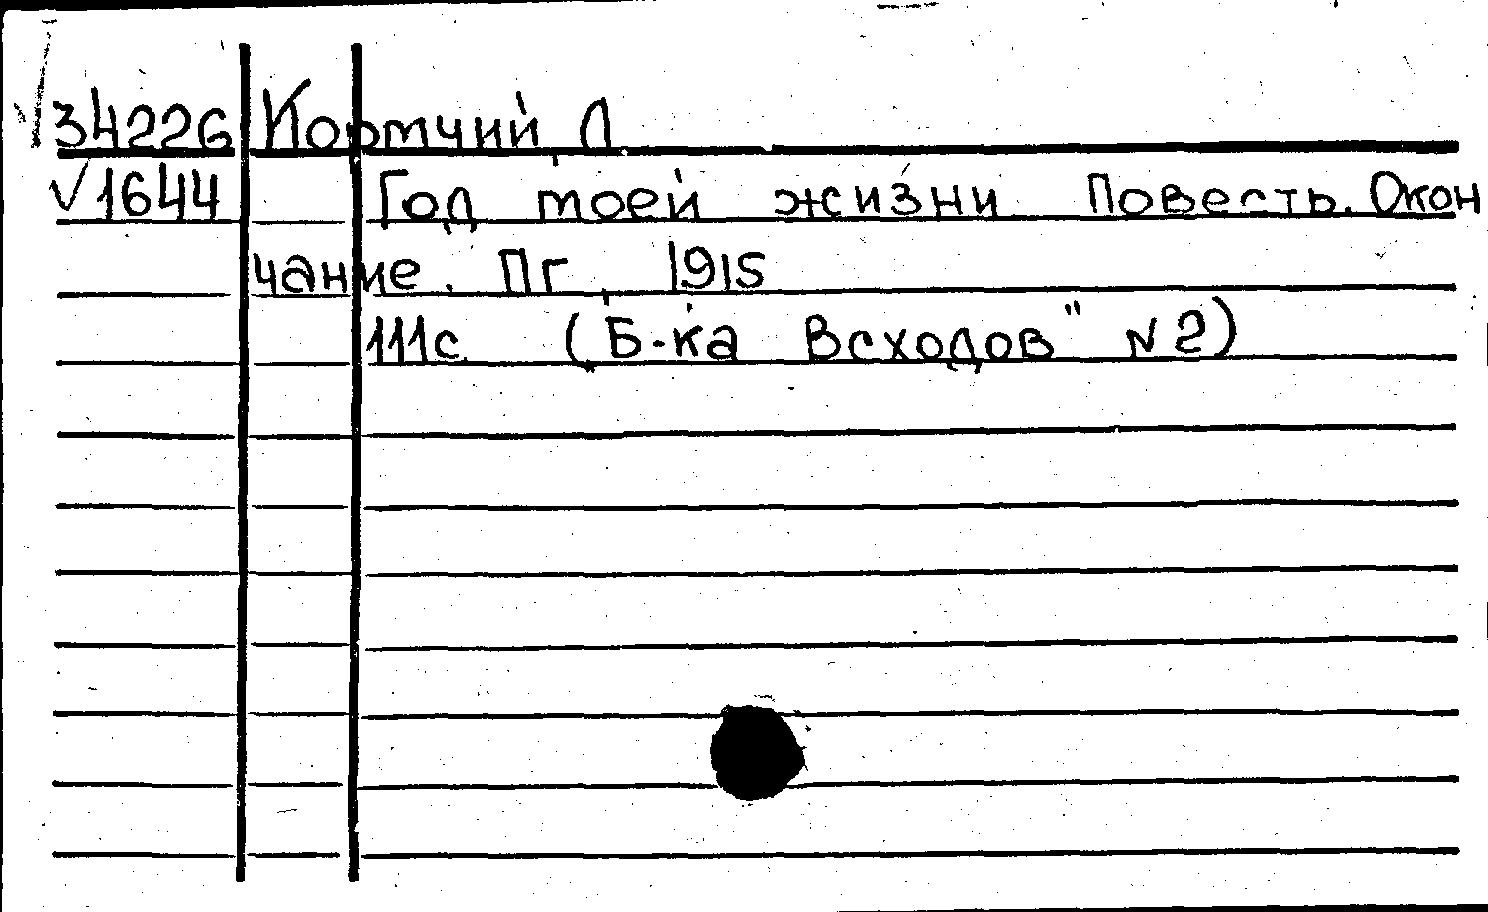 34226 Кортчий Л.
√1644 Год моей жизни Повесть. Окон
чание. Пг, 1915
111с. (Б-ка Всходов" N2)